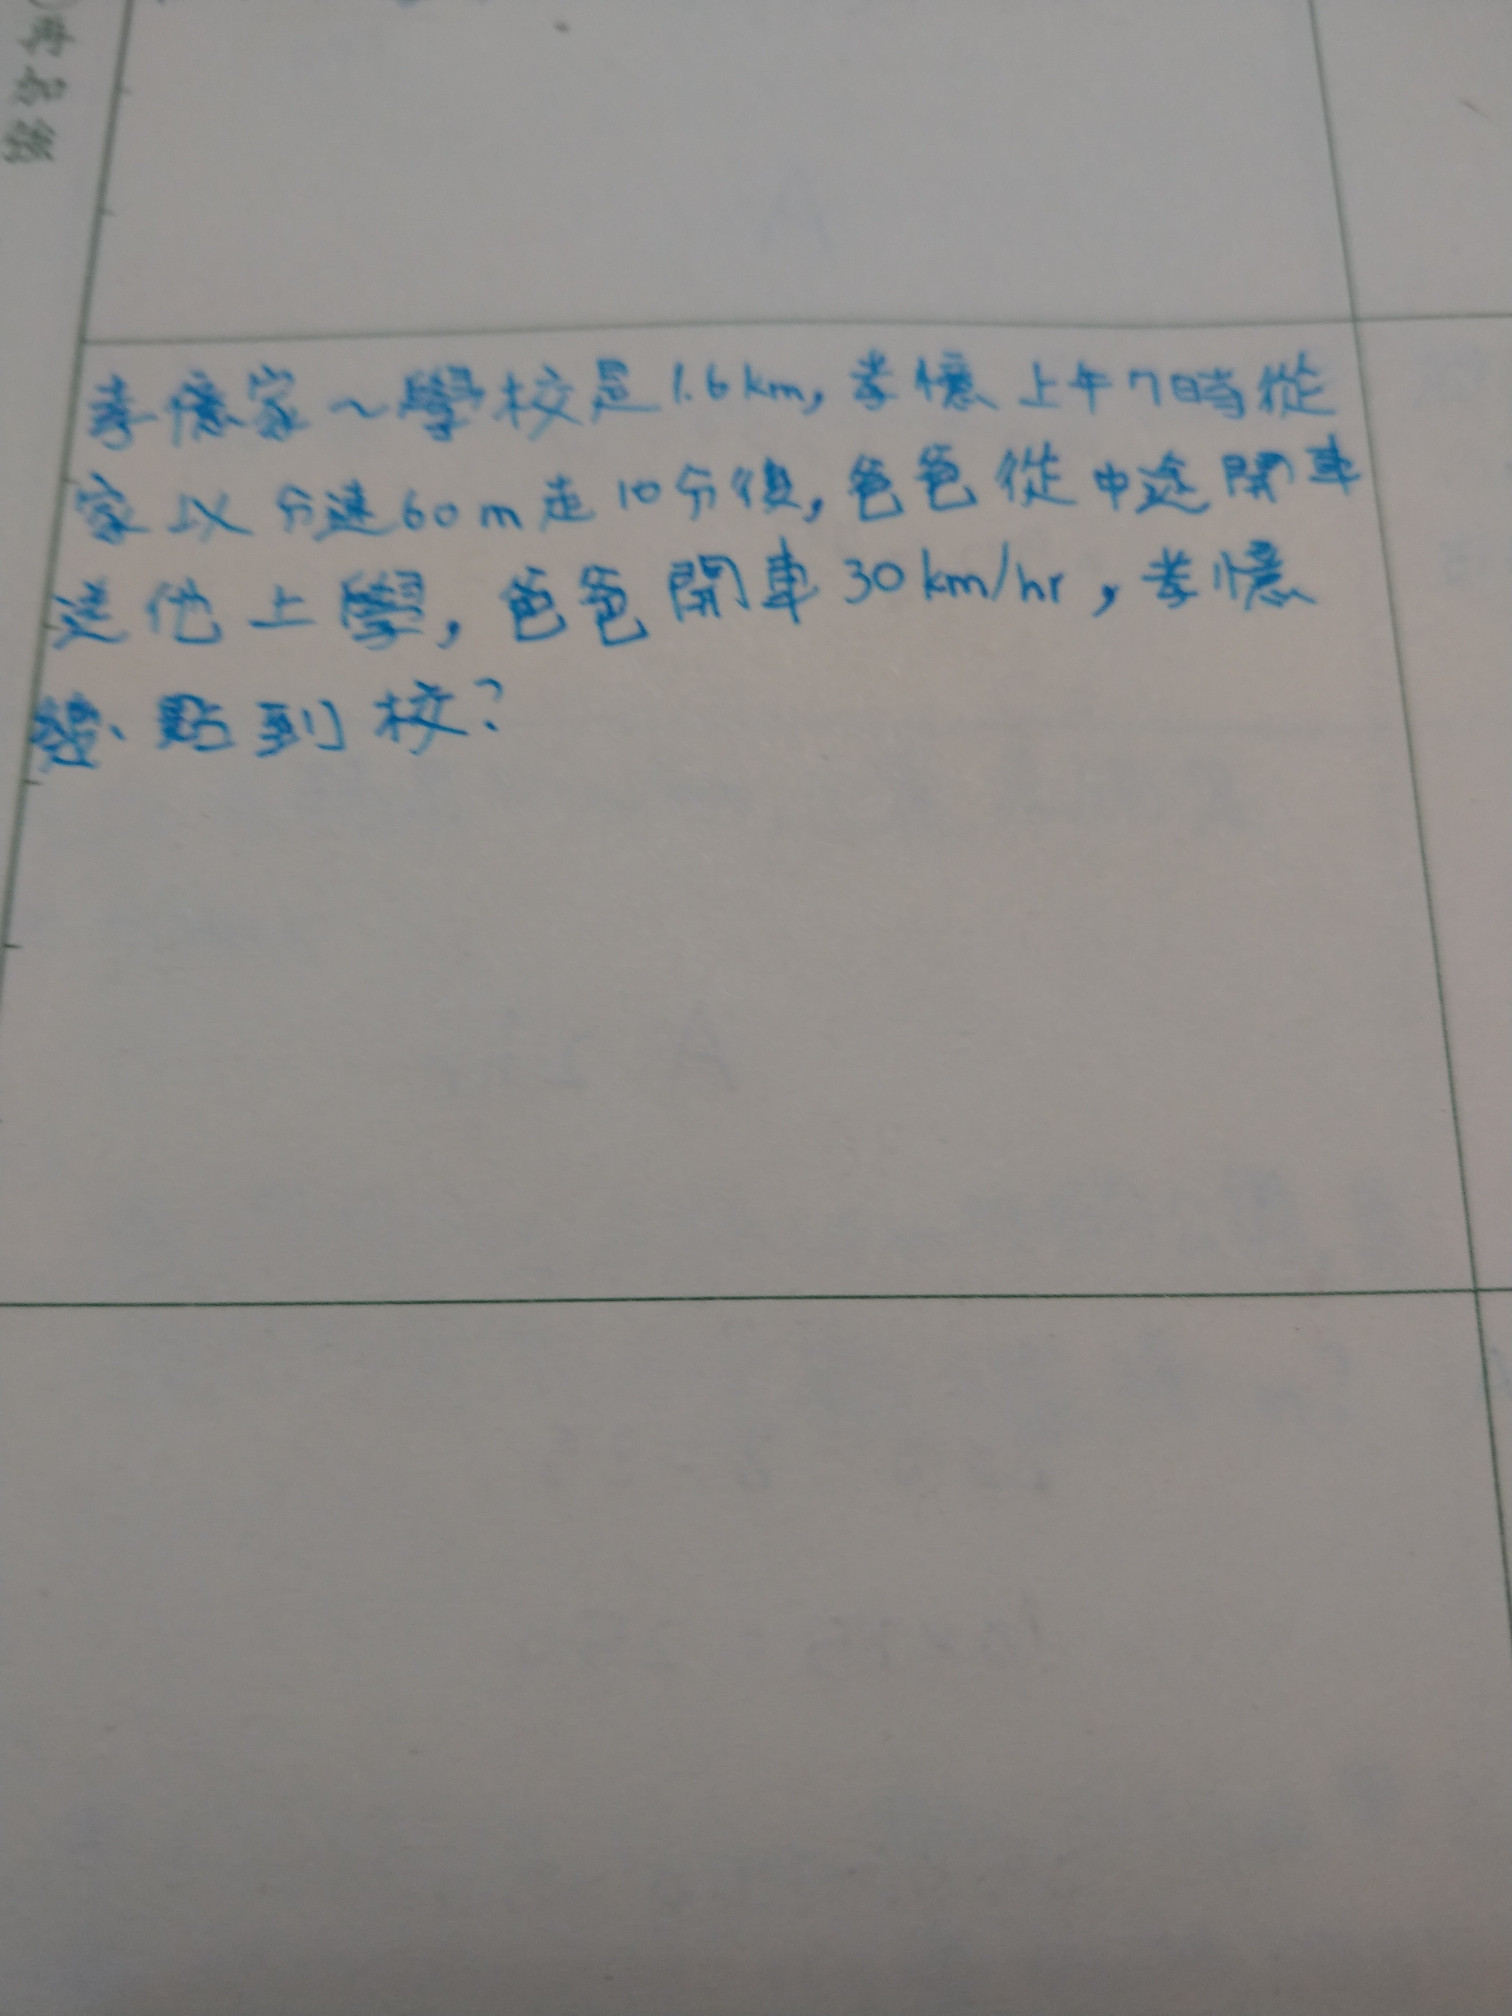 孝憶家～學校是1.6km, 孝憶上午7時從
家以分速60m走10分後, 爸爸從中途開車
送他上學, 爸爸開車30km/hr, 孝憶
幾點到校?